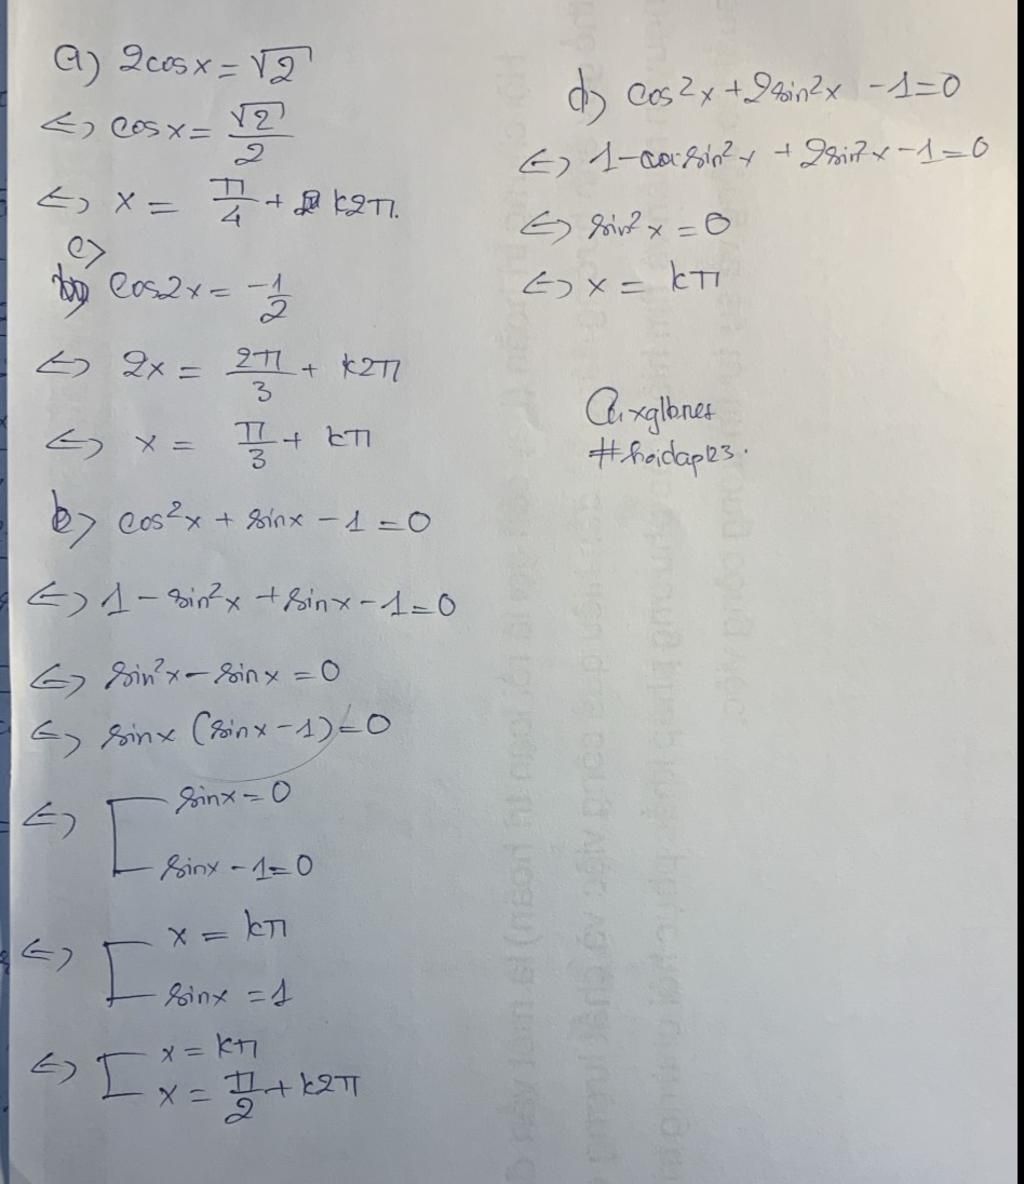 a) 2cosx = √2
<=> cosx = √2/2
<=> x = π/4 + k2π.
c)
cos2x = -1/2
<=> 2x = 2π/3 + k2π
<=> x = π/3 + kπ
b) cos²x + sinx - 1 = 0
<=> 1 - sin²x + sinx - 1 = 0
<=> sin²x - sinx = 0
<=> sinx (sinx - 1) = 0
<=> [ sinx = 0
sinx - 1 = 0
<=> [ x = kπ
sinx = 1
<=> [ x = kπ
x = π/2 + k2π
d) cos²x + 2sin²x - 1 = 0
<=> 1 - sin²x + 2sin²x - 1 = 0
<=> sin²x = 0
<=> x = kπ
#hoidap123.